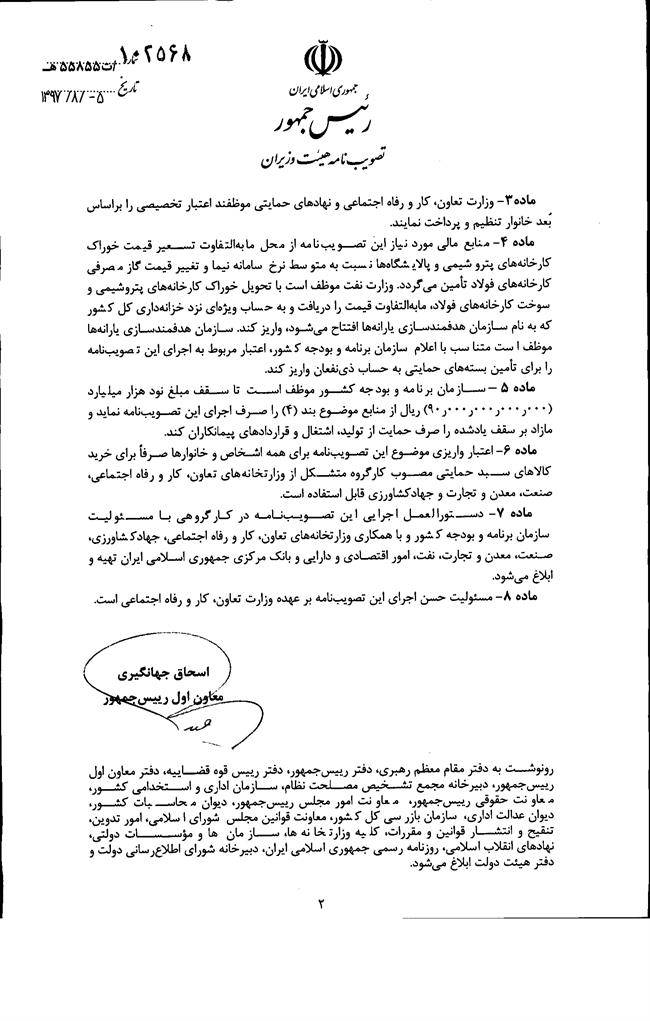 شماره ۱۰۲۵۶۸/ت۵۵۸۵۵هـ
تاریخ ۱۳۹۷/۰۸/۰۵
جمهوری اسلامی ایران
رئیس جمهور
تصویب نامه هیئت وزیران
ماده۳- وزارت تعاون، کار و رفاه اجتماعی و نهادهای حمایتی موظفند اعتبار تخصیصی را براساس
بُعد خانوار تنظیم و پرداخت نمایند.
ماده ۴- منابع مالی مورد نیاز این تصویب‌نامه از محل مابه‌التفاوت تسعیر قیمت خوراک
کارخانه‌های پتروشیمی و پالایشگاه‌ها نسبت به متوسط نرخ سامانه نیما و تغییر قیمت گاز مصرفی
کارخانه‌های فولاد تأمین می‌گردد. وزارت نفت موظف است با تحویل خوراک کارخانه‌های پتروشیمی و
سوخت کارخانه‌های فولاد، مابه‌التفاوت قیمت را دریافت و به حساب ویژه‌ای نزد خزانه‌داری کل کشور
که به نام سازمان هدفمندسازی یارانه‌ها افتتاح می‌شود، واریز کند. سازمان هدفمندسازی یارانه‌ها
موظف است متناسب با اعلام سازمان برنامه و بودجه کشور، اعتبار مربوط به اجرای این تصویب‌نامه
را برای تأمین بسته‌های حمایتی به حساب ذی‌نفعان واریز کند.
ماده ۵ – سازمان برنامه و بودجه کشور موظف است تا سقف مبلغ نود هزار میلیارد
(۹۰٫۰۰۰٫۰۰۰٫۰۰۰٫۰۰۰) ریال از منابع موضوع بند (۴) را صرف اجرای این تصویب‌نامه نماید و
مازاد بر سقف یادشده را صرف حمایت از تولید، اشتغال و قراردادهای پیمانکاران کند.
ماده ۶- اعتبار واریزی موضوع این تصویب‌نامه برای همه اشخاص و خانوارها صرفاً برای خرید
کالاهای سبد حمایتی مصوب کارگروه متشکل از وزارتخانه‌های تعاون، کار و رفاه اجتماعی،
صنعت، معدن و تجارت و جهادکشاورزی قابل استفاده است.
ماده ۷- دستورالعمل اجرایی این تصویب‌نامه در کارگروهی با مسئولیت
سازمان برنامه و بودجه کشور و با همکاری وزارتخانه‌های تعاون، کار و رفاه اجتماعی، جهادکشاورزی،
صنعت، معدن و تجارت، نفت، امور اقتصادی و دارایی و بانک مرکزی جمهوری اسلامی ایران تهیه و
ابلاغ می‌شود.
ماده ۸- مسئولیت حسن اجرای این تصویب‌نامه بر عهده وزارت تعاون، کار و رفاه اجتماعی است.
اسحاق جهانگیری
معاون اول رییس‌جمهور
رونوشت به دفتر مقام معظم رهبری، دفتر رییس‌جمهور، دفتر رییس قوه قضاییه، دفتر معاون اول
رییس‌جمهور، دبیرخانه مجمع تشخیص مصلحت نظام، سازمان اداری و استخدامی کشور،
معاونت حقوقی رییس‌جمهور، معاونت امور مجلس رییس‌جمهور، دیوان محاسبات کشور،
دیوان عدالت اداری، سازمان بازرسی کل کشور، معاونت قوانین مجلس شورای اسلامی، امور تدوین،
تنقیح و انتشار قوانین و مقررات، کلیه وزارتخانه‌ها، سازمان‌ها و مؤسسات دولتی،
نهادهای انقلاب اسلامی، روزنامه رسمی جمهوری اسلامی ایران، دبیرخانه شورای اطلاع‌رسانی دولت و
دفتر هیئت دولت ابلاغ می‌شود.
۲